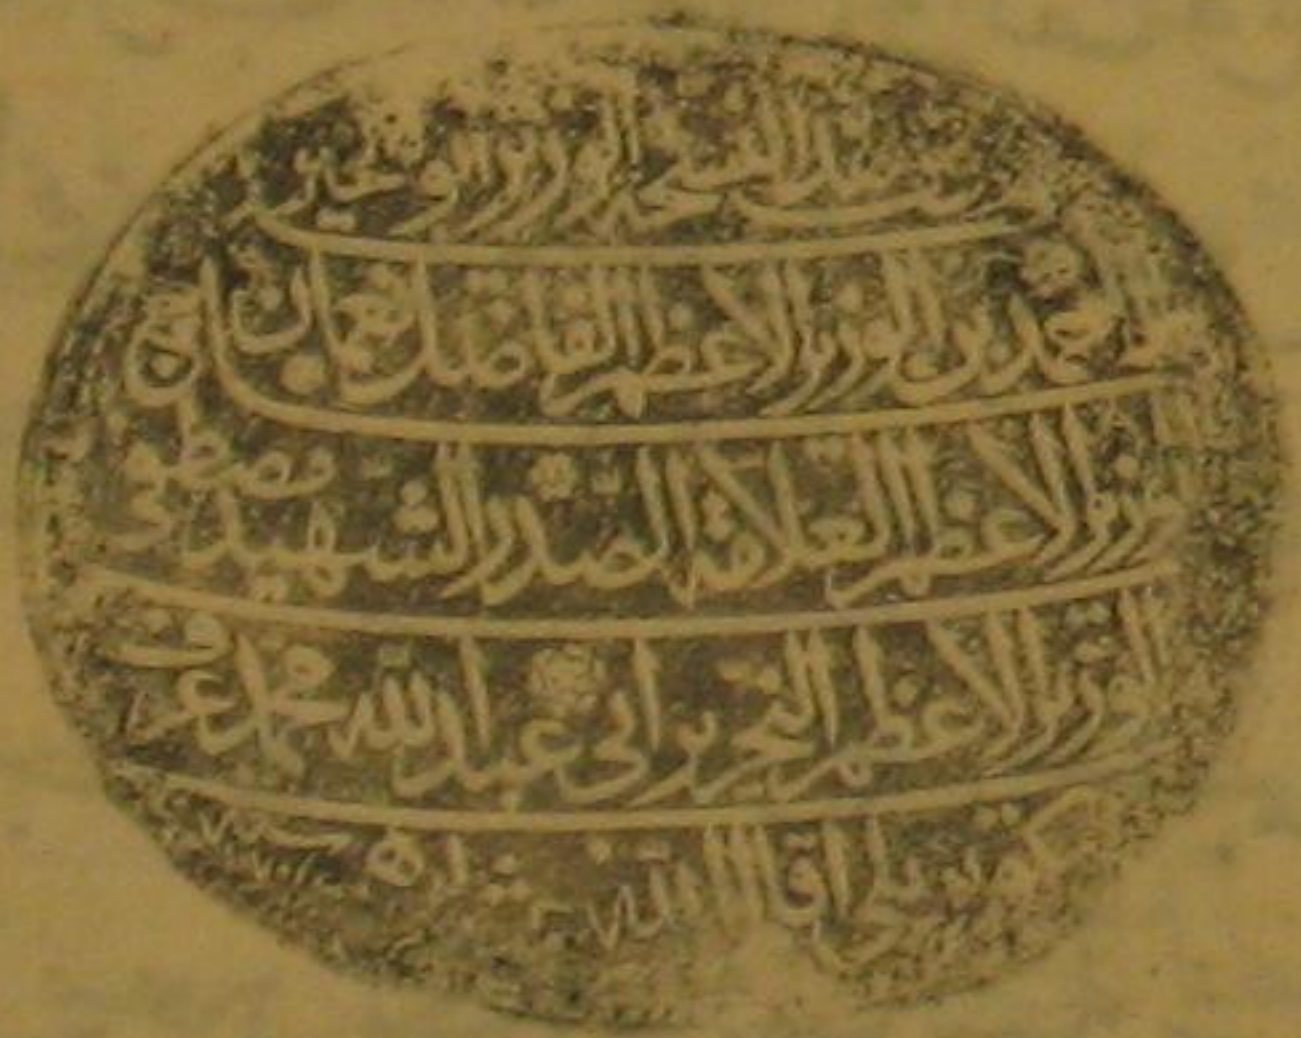 الوزير ابو الخير
احمد بن الوزير الاعظم الفاضل نعمان ابن
الوزير الاعظم العلامة الصدر الشهيد مصطفى
الوزير الاعظم النحرير ابي عبد الله محمد عرف
كوپريلي اقال الله